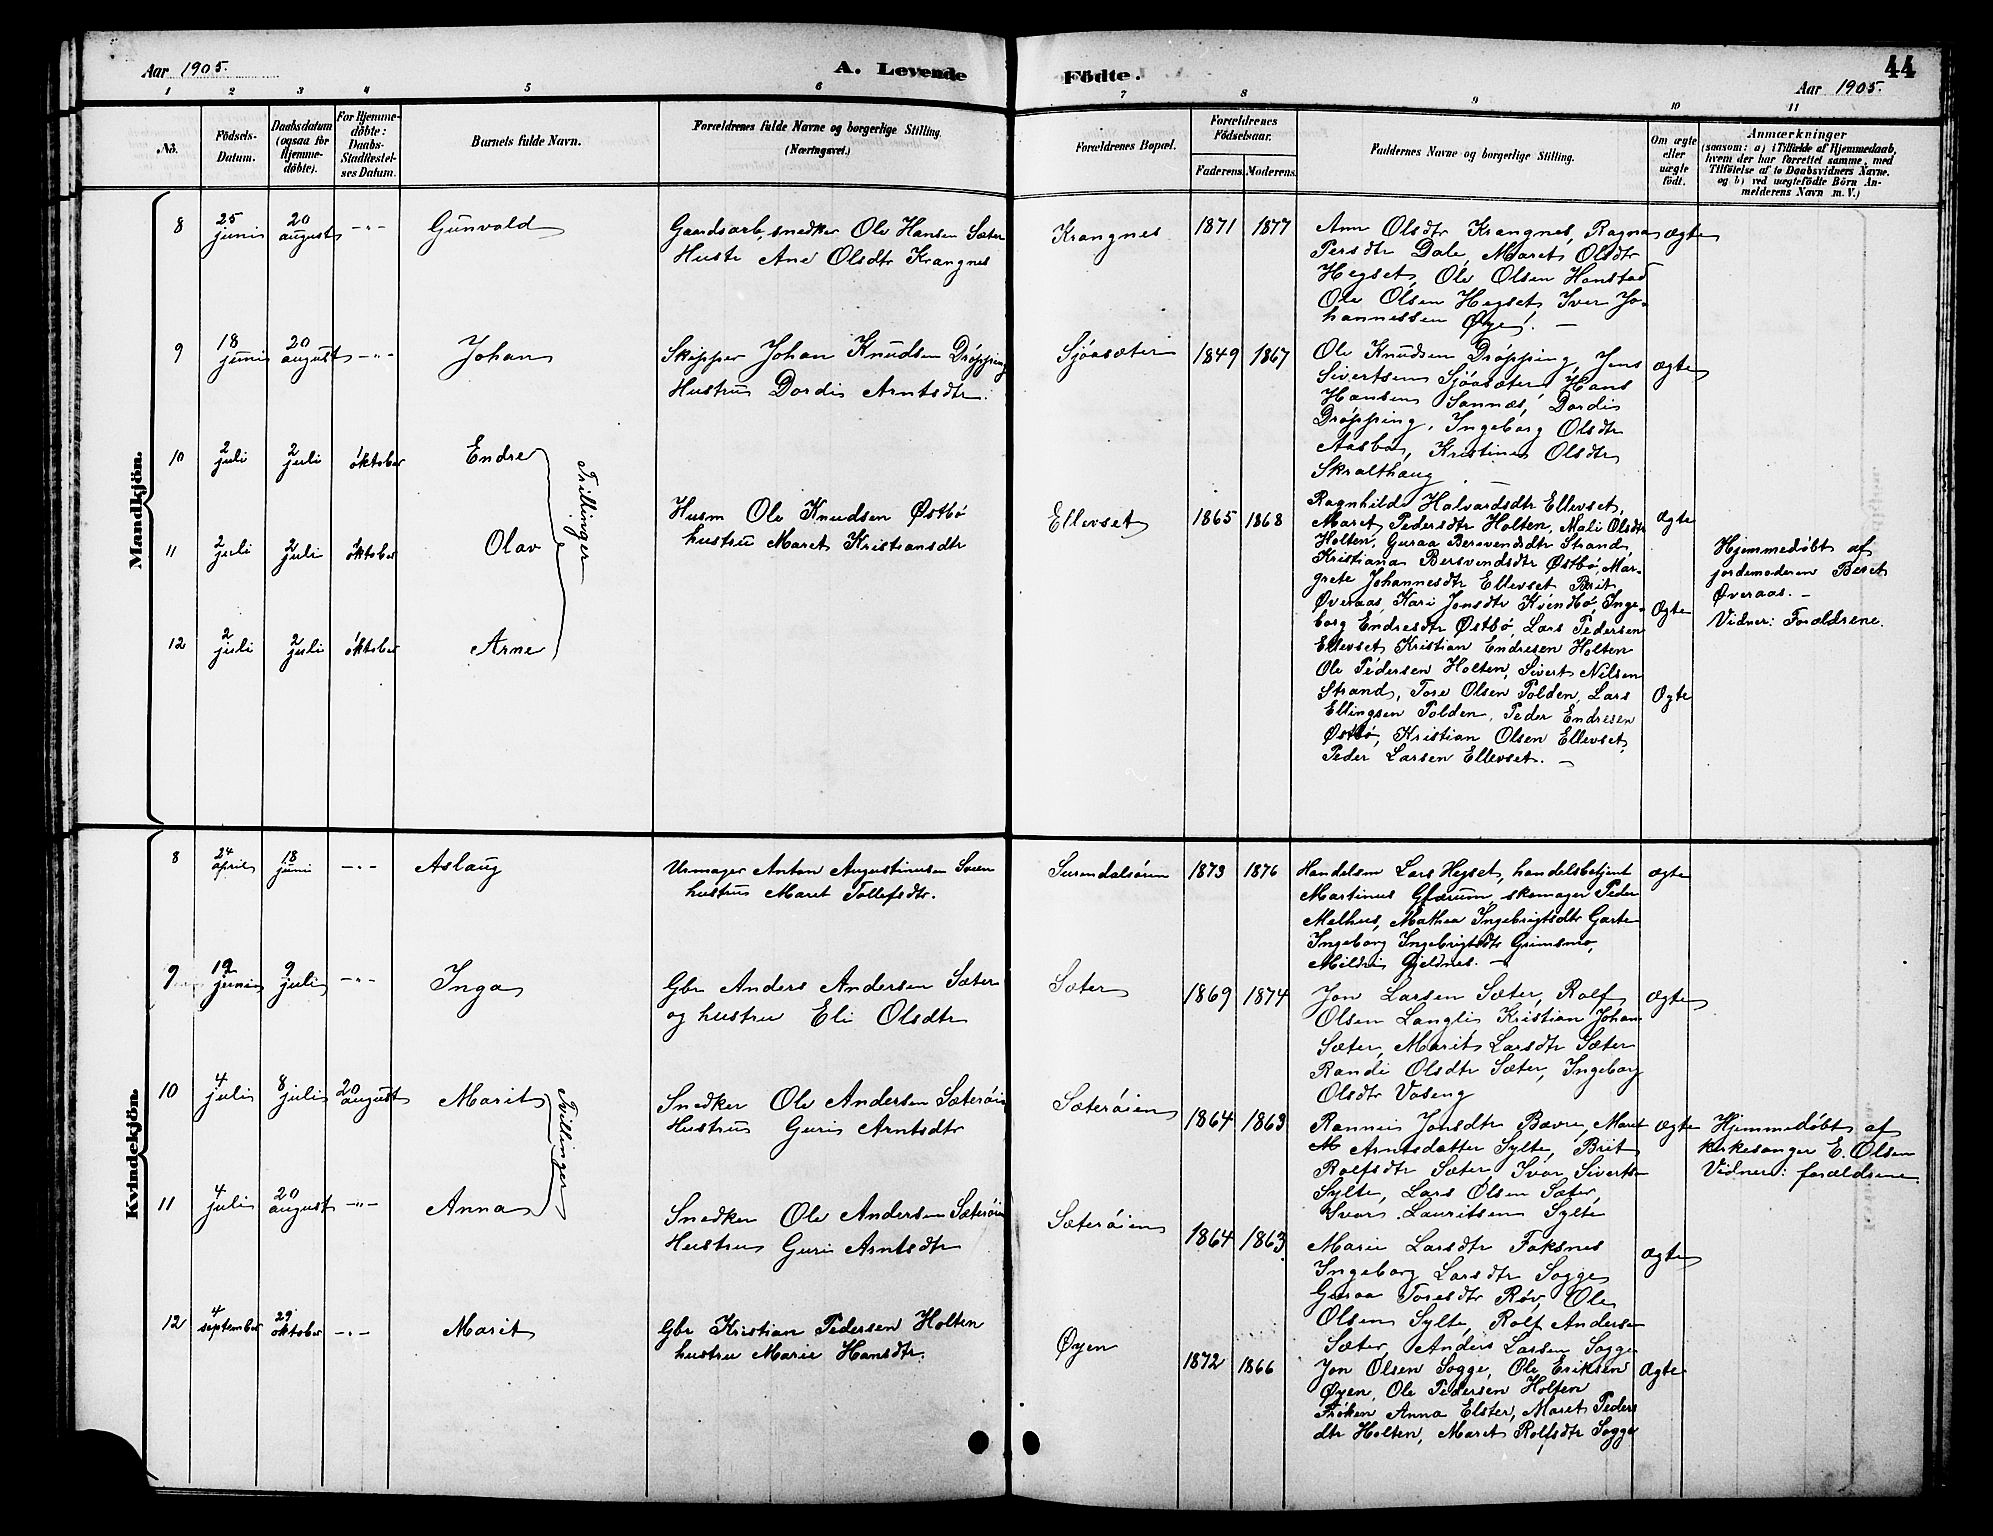 Aar 1905.
A. Levende
Födte.
44
Aar 1905.
1 2 3 4 5 6 7 8 9 10 11
No.
Födsels-
Datum.
Daabsdatum
(ogsaa for
Hjemme-
døbte).
For Hjemme-
døbte:
Daabs-
Stadfæstel-
ses Datum.
Barnets fulde Navn.
Forældrenes fulde Navne og borgerlige Stilling.
(Næringsvei.)
Forældrenes Bopæl.
Forældrenes
Födselsaar.
Faderens. Moderens.
Faddernes Navne og borgerlige Stilling.
Om ægte
eller
uægte
født.
Anmærkninger
(saasom: a) i Tilfælde af Hjemmedaab,
hvem der har forrettet samme, med
Tilföielse af to Daabsvidners Navne.
og b) ved uægtefødte Börn An-
melderens Navn m. V.)
Mandkjön.
8
25
juni
20
august
-"-
Gunvald
Gaardsarb, snedker Ole Hansen Sæter
Hustr Ane Olsdtr Krangnes
Krangnes
1871 1877
Ane Olsdtr Krangnes, Ragna
Persdtr Dale, Maret Olsdtr
Hegset, Ole Olsen Honstad
Ole Olsen Hegset Iver Jo-
hannessen Øye. —
ægte
9
18
juni
20
august
-"-
Johan
Skipper Johan Knudsen Drøpping
Hustru Dordi Arntsdtr.
Sjøasæter
1849 1867
Ole Knudsen Drøpping, Jens
Sivertsen Sjøasæter, Hans
Hansen Sannæs, Dordi
Drøpping, Ingeborg Olsdtr
Aasbø, Kristine Olsdtr
Skralthaug —
ægte
10
2
juli
2
juli
oktober
Endre
11
2
juli
2
juli
oktober
Olav
12
2
juli
2
juli
oktober
Arne
Trillinger
Husm Ole Knudsen Østbø
hustru Maret Kristiansdtr
Ellevset
1865 1868
Ragnhild Halvardsdtr Ellevset,
Maret Pedersdtr Holten, Mali Olsdtr
Holten, Guraa Bersvendsdtr Strand
Kristiana Bersvendsdtr Østbø, Mar-
grete Johannesdtr Ellevset Brit
Øveraas, Kari Jonsdtr Kvendbø, Inge-
borg Endresdtr Østbø, Lars Pedersen
Ellevset Kristian Endresen Holten
Ole Pedersen Holten, Sivert Nilsen
Strand, Tore Olsen Polden, Lars
Ellingsen Polden, Peder Endresen
Østbø, Kristian Olsen Ellevset,
Peder Larsen Ellevset. —
Ægte
Ægte
Ægte
Hjemmedøbt af
jordemoderen Beret
Øveraas. -
Vidner: Forældrene.
Kvindekjön.
8
24
april
18
juni
-"-
Aslaug
Urmager Anton Augustinusen Sven
hustru Maret Tollefsdtr.
Surendalsøren
1873 1876
Handelsm Lars Hegset, handelsbetjent
Martinus Glærum, skomager Peder
Melhus, Mathea Ingebrigtsdtr Garte
Ingeborg Ingebrigtsdtr Grimsmo,
Mildri Gjeldnes. —
ægte
9
19
juni
9
juli
-"-
Inga
Gbr Anders Andersen Sæter
og hustru Eli Olsdtr
Sæter
1869 1874
Jon Larsen Sæter, Rolf
Olsen Langli Kristian Johan
Sæter, Marit Larsdtr Sæter
Randi Olsdtr Sæter, Ingeborg
Olsdtr Vaseng
Ægte
10
4
juli
8
juli
20
august
Marit
Tvillinger
Snedker Ole Andersen Sæterøien
Hustru Guri Arntsdtr
Sæterøien
1864 1863
Rannei Jonsdtr Bævre, Maret
M Arnsdatter Sylte, Brit
Rolfsdtr Sæter Ivar Siverts
Sylte, Lars Olsen Sæter,
Ivar Lauritsen Sylte
Ægte
Hjemmedøbt af
kirkesanger E. Olsen
Vidner: forældrene.
11
4
juli
20
august
-"-
Anna
Snedker Ole Andersen Sæterøien
Hustru Guri Arntsdtr
Sæterøien
1864 1863
Marie Larsdtr Faksnes
Ingeborg Larsdtr Sogge
Guraa Toresdtr Røv, Ole
Olsen Sylte, Rolf Andersen
Sæter, Anders Larsen Sogge
Ægte
12
4
september
29
oktober
-"-
Marit
Gbr Kristian Pedersen Holten
hustru Marie Hansdtr.
Øyen
1872 1866
Jon Olsen Sogge, Ole Eriksen
Øyen, Ole Pedersen Holten
Frøken Anna Elster, Maret Peders
dtr Holten, Maret Rolfsdtr Sogge
Ægte